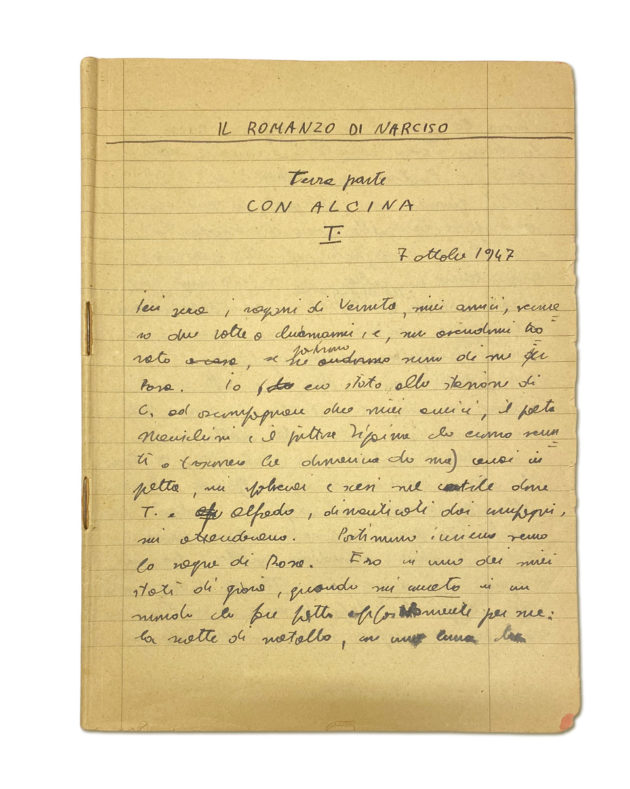 IL ROMANZO DI NARCISO
Terza parte
CON ALCINA
I.
7 ottobre 1947
Ieri sera, i ragazzi di miei amici, venne=
ro due volte a chiamarmi, e, non avendomi tro=
vato a casa, se ne andarono senza di me da
partirono
Rosa. Io ero stato alla stazione di
C. ad accompagnare due miei amici, il poeta
e il pittore che erano venu=
ti a la domenica da me) corsi in
fretta, mi e scesi nel cortile dove
T. e Alfredo, dimenticati dai compagni,
mi attendevano. Partimmo insieme verso
la sagra di Rosa. Ero in uno dei miei
stati di gioia, quando mi muovo in un
mondo che pare fatto appositamente per me:
la notte di metallo, con una luna che